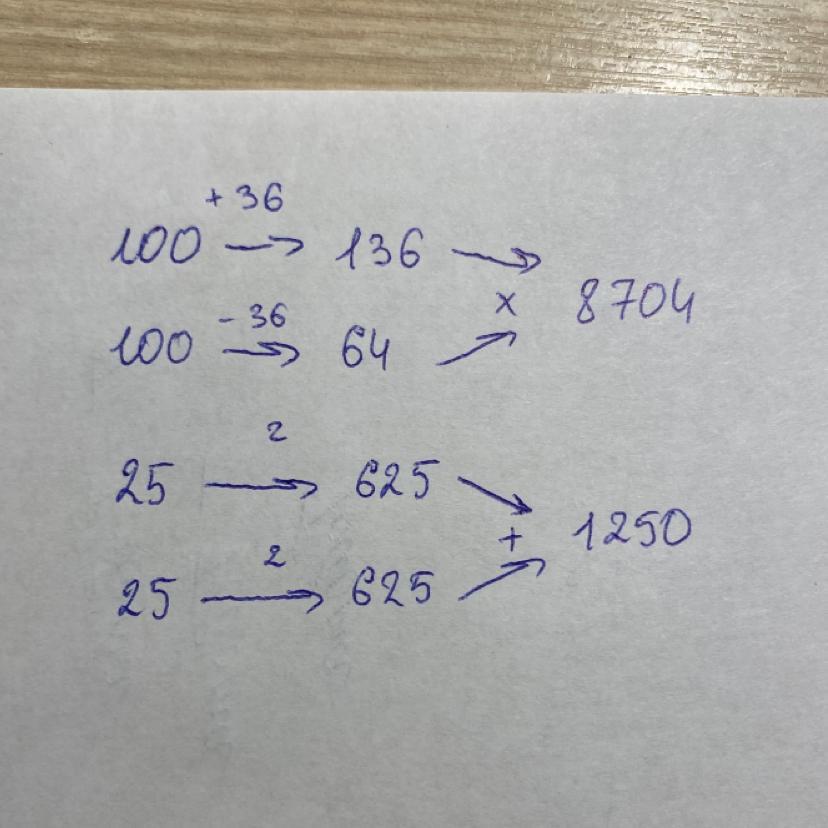 + 36
100 → 136 →
x 8704
- 36
100 → 64 →
2
25 → 625 →
+ 1250
2
25 → 625 →